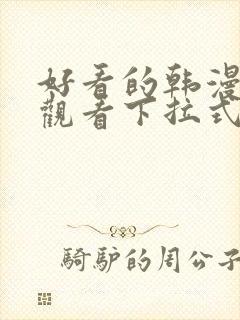 好看的韩漫
觀看下拉式
騎驴的周公子